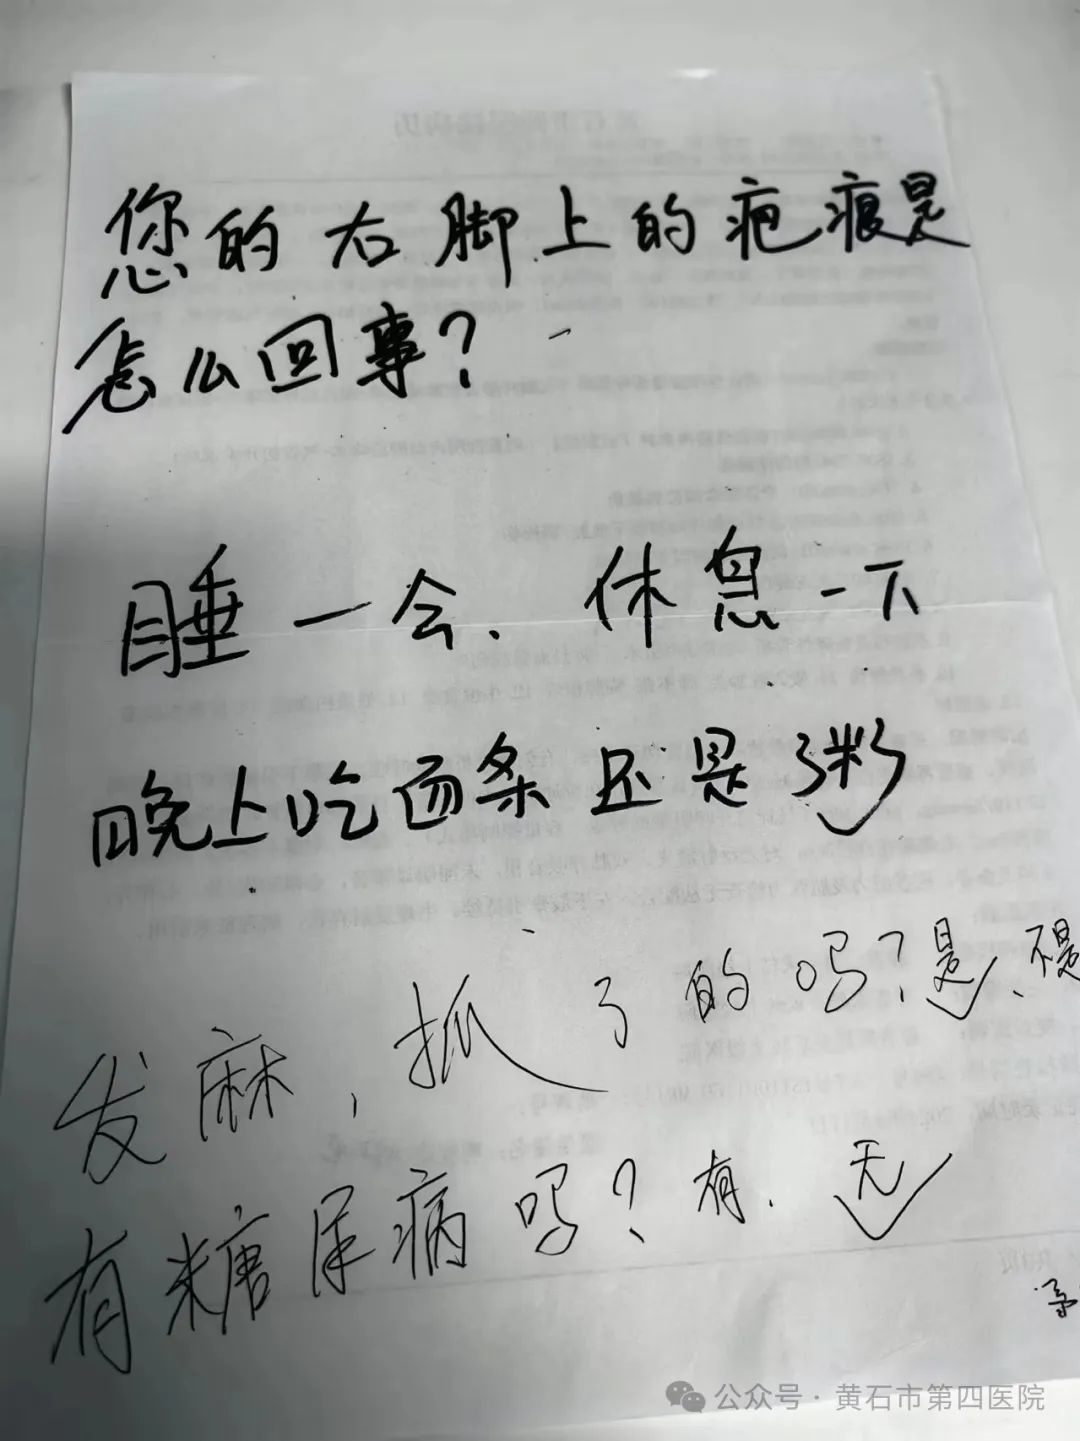 您的右脚上的疤痕是
怎么回事？
睡一会、休息一下
晚上吃面条还是粥
发麻，抓了的吗？是、不是
有糖尿病吗？有、无
公众号·黄石市第四医院